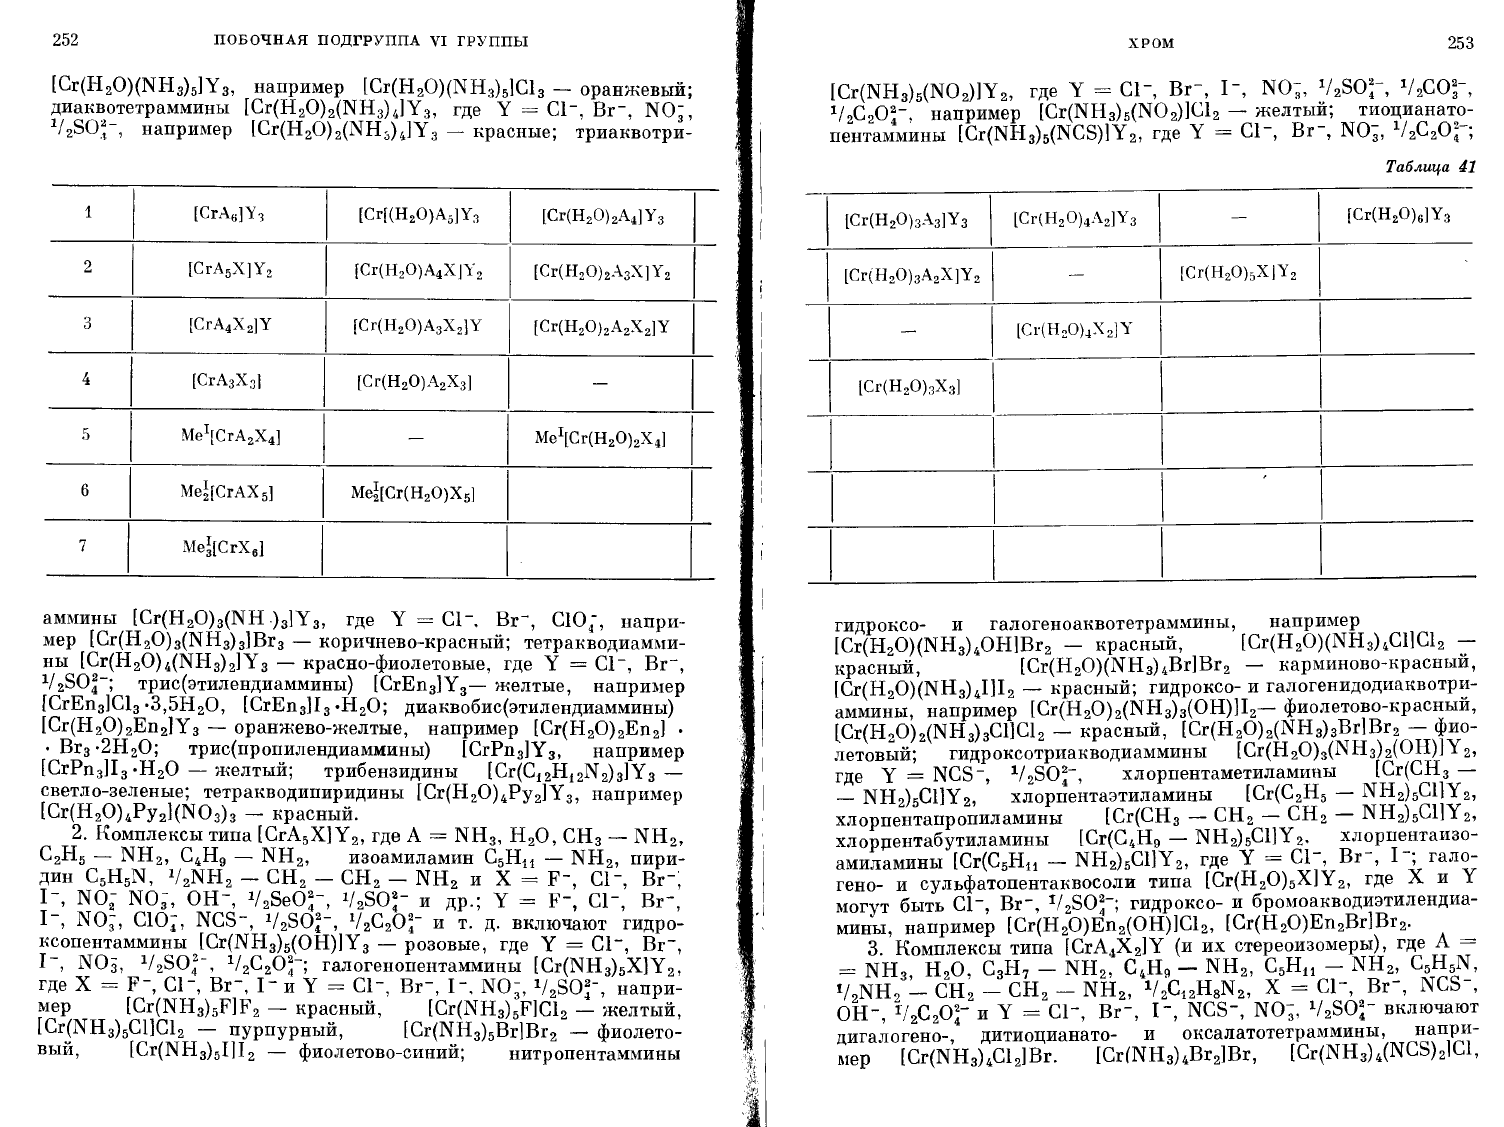 252 ПОБОЧНАЯ ПОДГРУППА VI ГРУППЫ
[Cr(H₂O)(NH₃)₅]Y₃, например [Cr(H₂O)(NH₃)₅]Cl₃ — оранжевый;
диаквотетраммины [Cr(H₂O)₂(NH₃)₄]Y₃, где Y = Cl⁻, Br⁻, NO₃⁻,
¹/₂SO₄²⁻, например [Cr(H₂O)₂(NH₃)₄]Y₃ — красные; триаквотри-
1 [CrA₆]Y₃ [Cr[(H₂O)A₅]Y₃ [Cr(H₂O)₂A₄]Y₃
2 [CrA₅X]Y₂ [Cr(H₂O)A₄X]Y₂ [Cr(H₂O)₂A₃X]Y₂
3 [CrA₄X₂]Y [Cr(H₂O)A₃X₂]Y [Cr(H₂O)₂A₂X₂]Y
4 [CrA₃X₃] [Cr(H₂O)A₂X₃] —
5 Meᴵ[CrA₂X₄] — Meᴵ[Cr(H₂O)₂X₄]
6 Meᴵ₂[CrAX₅] Meᴵ₂[Cr(H₂O)X₅]
7 Meᴵ₃[CrX₆]
аммины [Cr(H₂O)₃(NH )₃]Y₃, где Y = Cl⁻, Br⁻, ClO₄⁻, напри-
мер [Cr(H₂O)₃(NH₃)₃]Br₃ — коричнево-красный; тетракводиамми-
ны [Cr(H₂O)₄(NH₃)₂]Y₃ — красно-фиолетовые, где Y = Cl⁻, Br⁻,
¹/₂SO₄²⁻; трис(этилендиаммины) [CrEn₃]Y₃— желтые, например
[CrEn₃]Cl₃·3,5H₂O, [CrEn₃]I₃·H₂O; диаквобис(этилендиаммины)
[Cr(H₂O)₂En₂]Y₃ — оранжево-желтые, например [Cr(H₂O)₂En₂] ·
· Br₃·2H₂O; трис(пропилендиаммины) [CrPn₃]Y₃, например
[CrPn₃]I₃·H₂O — желтый; трибензидины [Cr(C₁₂H₁₂N₂)₃]Y₃ —
светло-зеленые; тетракводипиридины [Cr(H₂O)₄Py₂]Y₃, например
[Cr(H₂O)₄Py₂](NO₃)₃ — красный.
2. Комплексы типа [CrA₅X]Y₂, где A = NH₃, H₂O, CH₃ — NH₂,
C₂H₅ — NH₂, C₄H₉ — NH₂, изоамиламин C₅H₁₁ — NH₂, пири-
дин C₅H₅N, ¹/₂NH₂ — CH₂ — CH₂ — NH₂ и X = F⁻, Cl⁻, Br⁻,
I⁻, NO₂⁻ NO₃⁻, OH⁻, ¹/₂SeO₄²⁻, ¹/₂SO₄²⁻ и др.; Y = F⁻, Cl⁻, Br⁻,
I⁻, NO₃⁻, ClO₄⁻, NCS⁻, ¹/₂SO₄²⁻, ¹/₂C₂O₄²⁻ и т. д. включают гидро-
ксопентаммины [Cr(NH₃)₅(OH)]Y₃ — розовые, где Y = Cl⁻, Br⁻,
I⁻, NO₃⁻, ¹/₂SO₄²⁻, ¹/₂C₂O₄²⁻; галогенопентаммины [Cr(NH₃)₅X]Y₂,
где X = F⁻, Cl⁻, Br⁻, I⁻ и Y = Cl⁻, Br⁻, I⁻, NO₃⁻, ¹/₂SO₄²⁻, напри-
мер [Cr(NH₃)₅F]F₂ — красный, [Cr(NH₃)₅F]Cl₂ — желтый,
[Cr(NH₃)₅Cl]Cl₂ — пурпурный, [Cr(NH₃)₅Br]Br₂ — фиолето-
вый, [Cr(NH₃)₅I]I₂ — фиолетово-синий; нитропентаммины
ХРОМ 253
[Cr(NH₃)₅(NO₂)]Y₂, где Y = Cl⁻, Br⁻, I⁻, NO₃⁻, ¹/₂SO₄²⁻, ¹/₂CO₃²⁻,
¹/₂C₂O₄²⁻, например [Cr(NH₃)₅(NO₂)]Cl₂ — желтый; тиоцианато-
пентаммины [Cr(NH₃)₅(NCS)]Y₂, где Y = Cl⁻, Br⁻, NO₃⁻, ¹/₂C₂O₄²⁻;
Таблица 41
[Cr(H₂O)₃A₃]Y₃ [Cr(H₂O)₄A₂]Y₃ — [Cr(H₂O)₆]Y₃
[Cr(H₂O)₃A₂X]Y₂ — [Cr(H₂O)₅X]Y₂
— [Cr(H₂O)₄X₂]Y
[Cr(H₂O)₃X₃]
гидроксо- и галогеноаквотетраммины, например
[Cr(H₂O)(NH₃)₄OH]Br₂ — красный, [Cr(H₂O)(NH₃)₄Cl]Cl₂ —
красный, [Cr(H₂O)(NH₃)₄Br]Br₂ — карминово-красный,
[Cr(H₂O)(NH₃)₄I]I₂ — красный; гидроксо- и галогенидодиаквотри-
аммины, например [Cr(H₂O)₂(NH₃)₃(OH)]I₂— фиолетово-красный,
[Cr(H₂O)₂(NH₃)₃Cl]Cl₂ — красный, [Cr(H₂O)₂(NH₃)₃Br]Br₂ — фио-
летовый; гидроксотриакводиаммины [Cr(H₂O)₃(NH₃)₂(OH)]Y₂,
где Y = NCS⁻, ¹/₂SO₄²⁻, хлорпентаметиламины [Cr(CH₃ —
— NH₂)₅Cl]Y₂, хлорпентаэтиламины [Cr(C₂H₅ — NH₂)₅Cl]Y₂,
хлорпентапропиламины [Cr(CH₃ — CH₂ — CH₂ — NH₂)₅Cl]Y₂,
хлорпентабутиламины [Cr(C₄H₉ — NH₂)₅Cl]Y₂, хлорпентаизо-
амиламины [Cr(C₅H₁₁ — NH₂)₅Cl]Y₂, где Y = Cl⁻, Br⁻, I⁻; гало-
гено- и сульфатопентаквосоли типа [Cr(H₂O)₅X]Y₂, где X и Y
могут быть Cl⁻, Br⁻, ¹/₂SO₄²⁻; гидроксо- и бромоакводиэтилендиа-
мины, например [Cr(H₂O)En₂(OH)]Cl₂, [Cr(H₂O)En₂Br]Br₂.
3. Комплексы типа [CrA₄X₂]Y (и их стереоизомеры), где A =
= NH₃, H₂O, C₃H₇ — NH₂, C₄H₉ — NH₂, C₅H₁₁ — NH₂, C₅H₅N,
¹/₂NH₂ — CH₂ — CH₂ — NH₂, ¹/₂C₁₂H₈N₂, X = Cl⁻, Br⁻, NCS⁻,
OH⁻, ¹/₂C₂O₄²⁻ и Y = Cl⁻, Br⁻, I⁻, NCS⁻, NO₃⁻, ¹/₂SO₄²⁻ включают
дигалогено-, дитиоцианато- и оксалатотетраммины, напри-
мер [Cr(NH₃)₄Cl₂]Br. [Cr(NH₃)₄Br₂]Br, [Cr(NH₃)₄(NCS)₂]Cl,